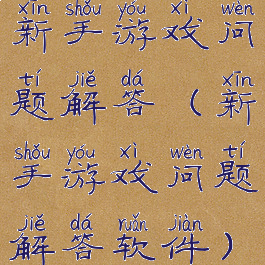 xīn shǒu yóu xì wèn
新手游戏问
tí jiě dá xīn
题解答（新
shǒu yóu xì wèn tí
手游戏问题
jiě dá ruǎn jiàn
解答软件）